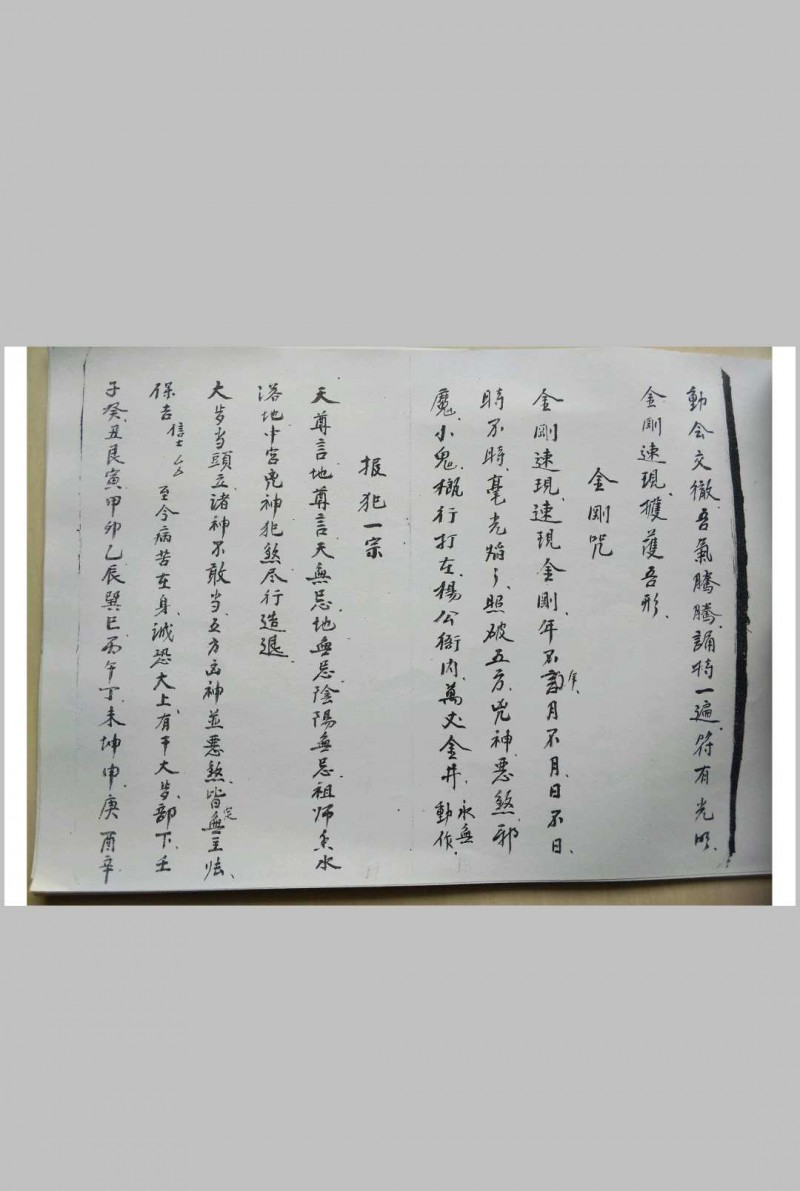 動会交徹、吾氣騰騰、誦特一遍、符有光明、
金剛速現、擭護吾形、
金剛咒
金剛速現、速現金剛、年不年、月不月、日不日、
時不時、毫光焰々、照破五方、兇神悪煞、邪
魔小鬼、概行打在、楊公衙内、萬丈金井、永無動作、
报犯一宗
天尊言地尊言、天無忌、地無忌、陰陽無忌、祖师香水
洛地中宮兇神犯煞尽行造退、
大歩当頭立、諸神不敢当、五方凶神並悪煞、皆無定主怯、
保吉信士厶厶 至今病苦在身、誠恐大上、有干大歩、部下、壬
子癸、丑艮寅、甲卯乙、辰巽巳、丙午丁、未坤申、庚酉辛